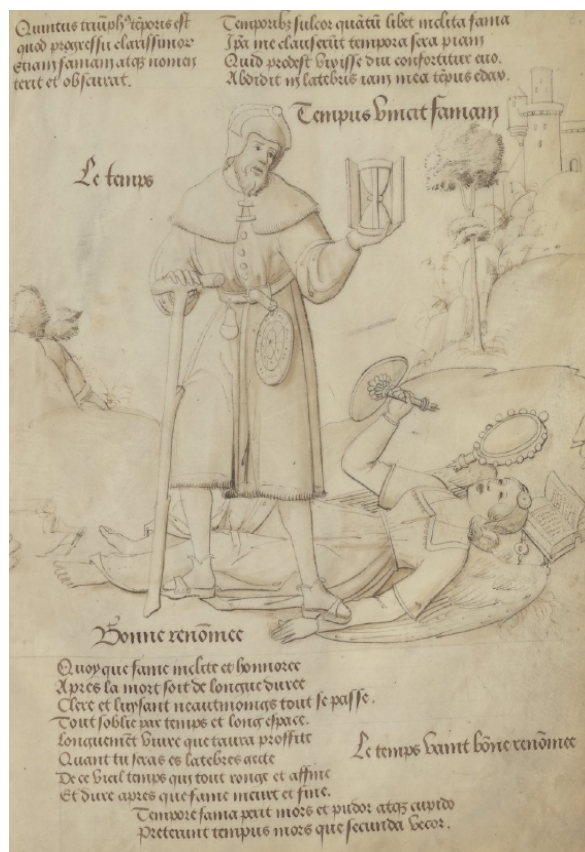 Quintus triũphꝰ tẽporis est
quod progressu clarissimor
Etiam famam atqꝫ nomen
terit et obscurat.
Temporibꝫ sulcor quãtũ libet inclita fama
Ip̃a me clauserũt tempora sera piam
Quid prodest vixisse diu confortitur euo.
Abdidit in latebris iam mea tẽpus edax.
Tempus vincit famam
Le temps
Bonne renõmee
Quoy que fame inclite et honnoree
Apres la mort soit de longue duree
Clere et luysant neautmoings tout se passe.
Tout soblie par temps et long espace.
Longuemẽt viure que taura proffite
Quant tu seras es latebres gecte
De ce vieil temps qui tout ronge et affine
Et dure apres que fame meurt et fine.
Le temps vaint bõne renõmee
Tempore fama perit mors et pudor atqꝫ cupido
Pretereunt tempus mors que secunda vocor.